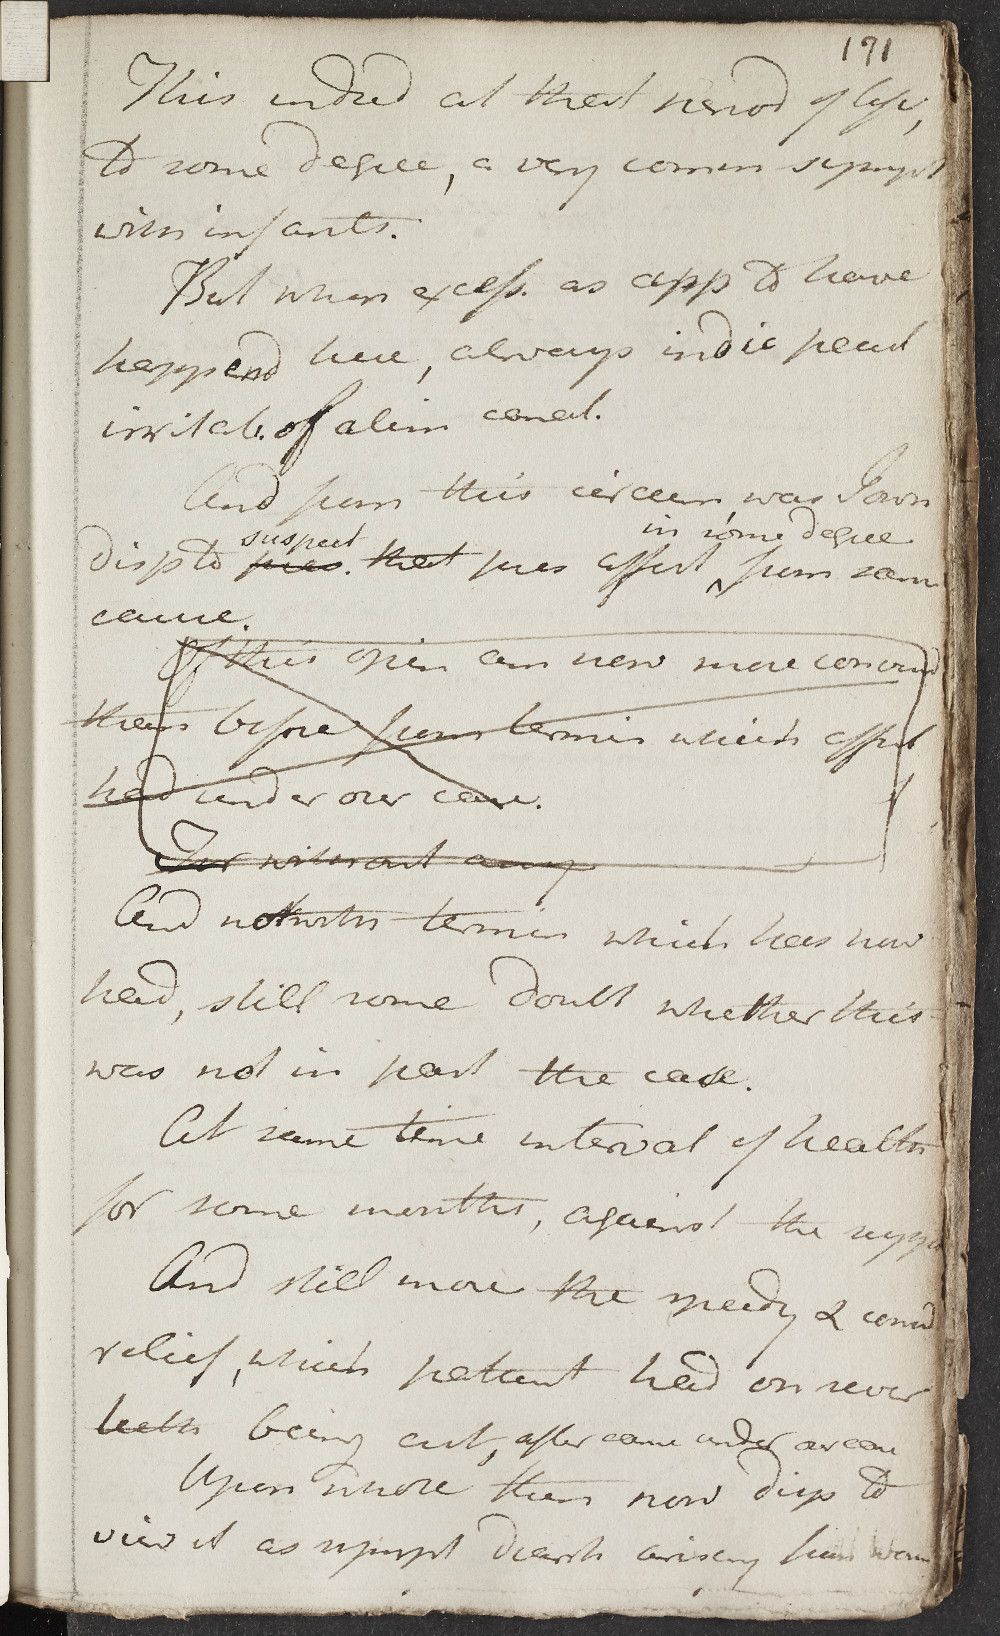 171
This indeed at that period of life,
to some degree, a very comm sympt
with infants.
But when excess. as app to have
happend here, always indic pecul
irritab. of alim canal.
And from this circum, was I own
suspect in some degree
disp to pres. that pres affect ^ from same
cause.
Of this opin am now more convincd
than before from termin which affect
had under our care.
For without any
And notwith termin which has now
had, still some doubt whether this
was not in part the case.
At same time interval of health
for some months, against the suppos
And still more the speedy & consid
relief, which patient had on sever
teeth being cut, after came under our care
Upon whole then now disp to
view it as sympt diarrh arising from